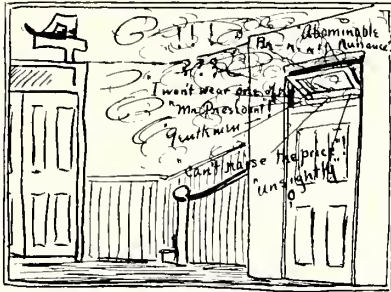 ! ! !
Abominable
Nuisance
? ? ?
I won't wear one of
"Mr President"!
Gentlemen
"Can't raise the price"!
"unsightly"